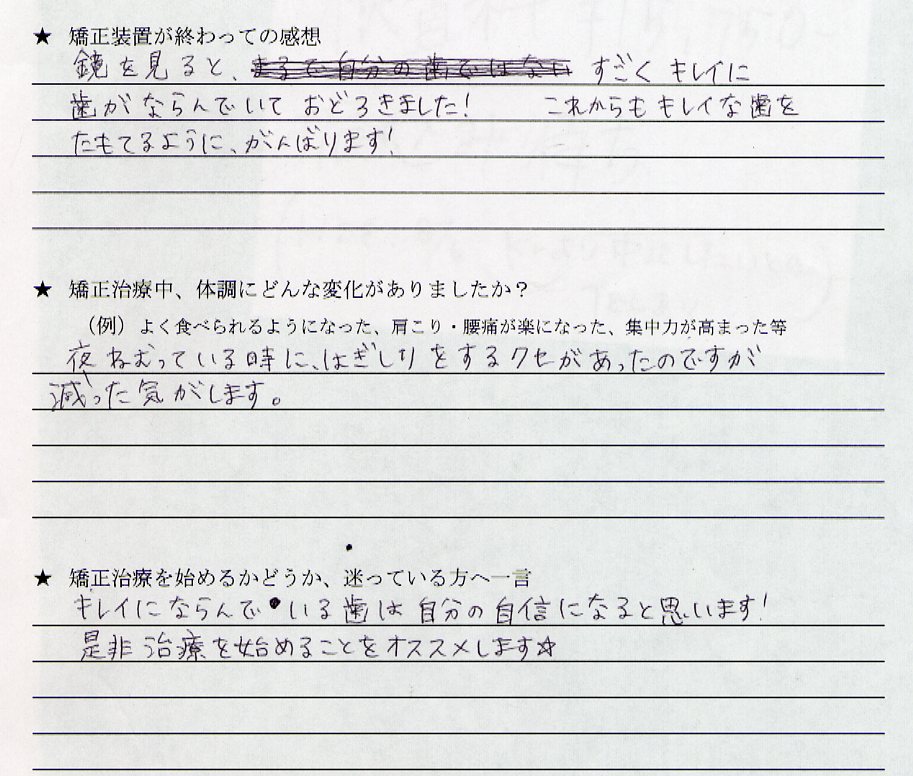 ★ 矯正装置が終わっての感想
鏡を見ると、まるで自分の歯ではない すごくキレイに
歯がならんでいて おどろきました! これからもキレイな歯を
たもてるように、がんばります!
★ 矯正治療中、体調にどんな変化がありましたか?
(例)よく食べられるようになった、肩こり・腰痛が楽になった、集中力が高まった等
夜ねむっている時に、はぎしりをするクセがあったのですが
減った気がします。
★ 矯正治療を始めるかどうか、迷っている方へ一言
キレイにならんでいる歯は自分の自信になると思います!
是非治療を始めることをオススメします☆